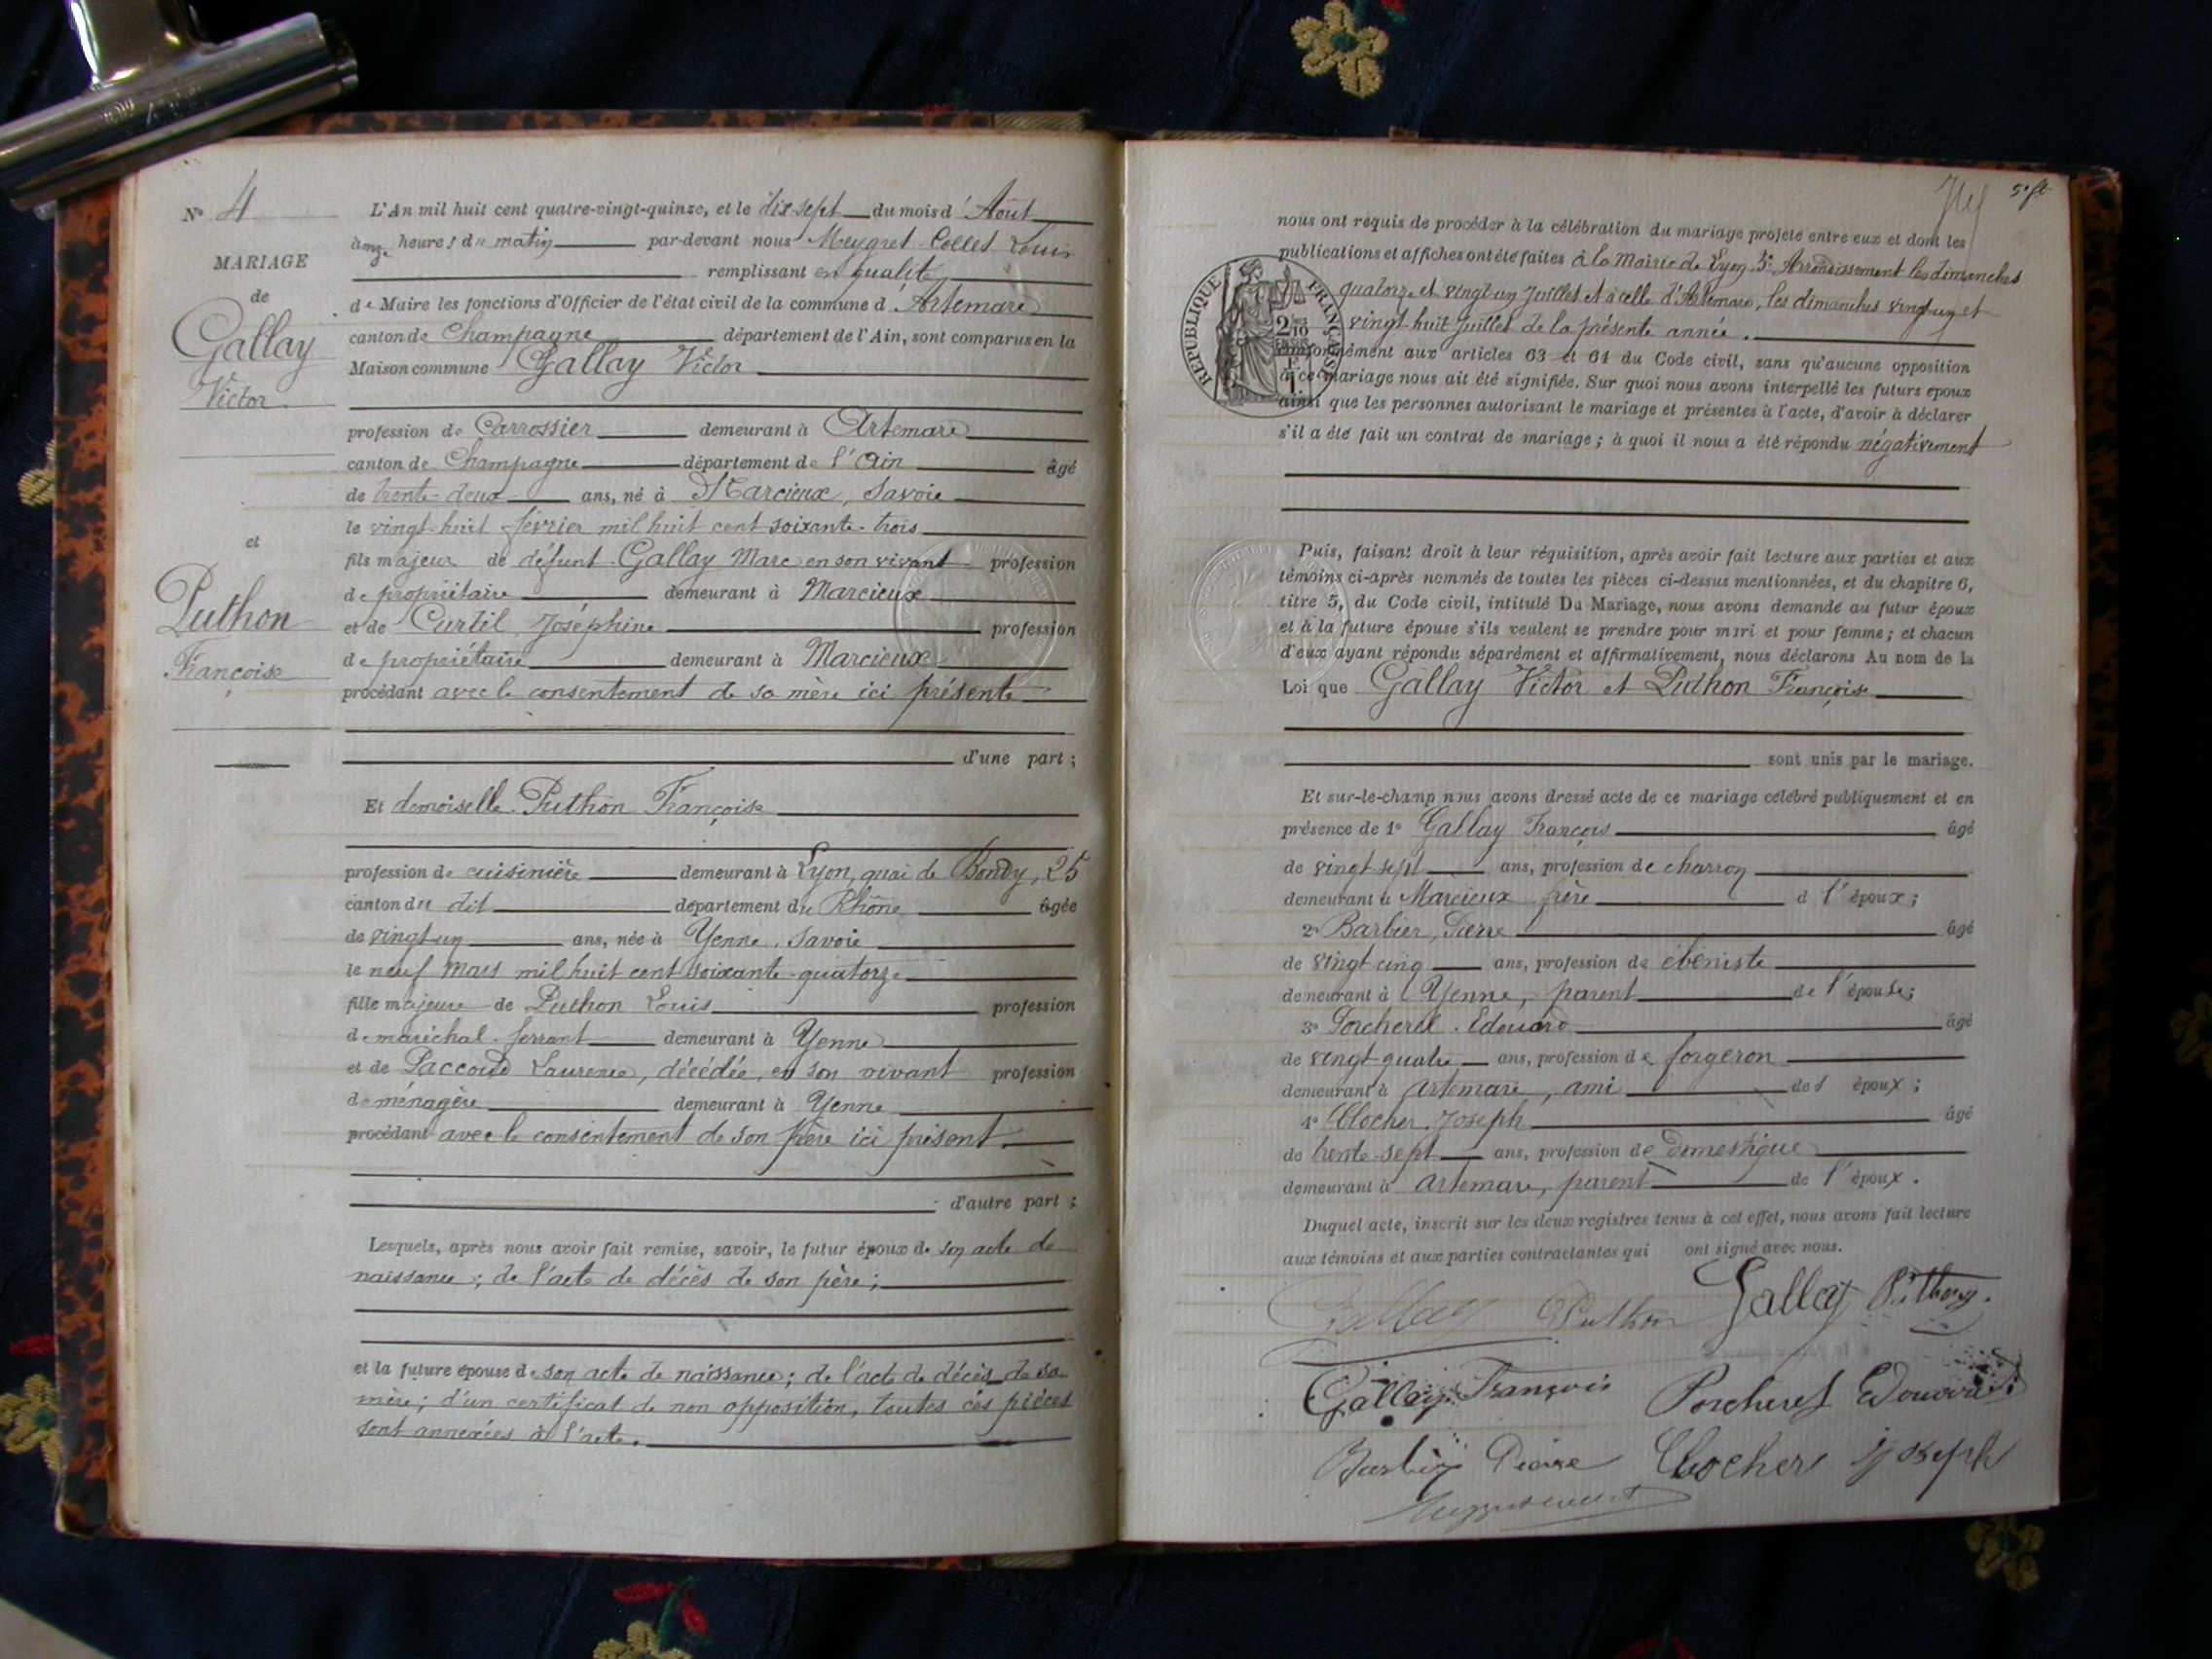 N° 4
MARIAGE
de
Gallay
Victor
et
Puthon
Françoise
L'An mil huit cent quatre-vingt-quinze, et le dix sept du mois d'Août
à onze heures du matin par-devant nous Meygret-Collet Louis
remplissant en qualité
de Maire les fonctions d'Officier de l'état civil de la commune d'Artemare
canton de Champagne département de l'Ain, sont comparus en la
Maison commune Gallay Victor
profession de Carrossier demeurant à Artemare
canton de Champagne département de l'Ain âgé
de trente-deux ans, né à Marcieux, Savoie
le vingt-huit février mil huit cent soixante-trois
fils majeur de défunt Gallay Marc en son vivant profession
de propriétaire demeurant à Marcieux
et de Curtil Joséphine profession
de propriétaire demeurant à Marcieux
procédant avec le consentement de sa mère ici présente
d'une part ;
Et demoiselle Puthon Françoise
profession de cuisinière demeurant à Lyon, quai de Bondy, 25
canton du dit département du Rhône âgée
de vingt-un ans, née à Yenne, Savoie
le neuf Mars mil huit cent soixante-quatorze
fille majeure de Puthon Louis profession
de maréchal-ferrant demeurant à Yenne
et de Paccoud Laurence, décédée, en son vivant profession
de ménagère demeurant à Yenne
procédant avec le consentement de son père ici présent.
d'autre part ;
Lesquels, après nous avoir fait remise, savoir, le futur époux de son acte de
naissance ; de l'acte de décès de son père ;
et la future épouse de son acte de naissance ; de l'acte de décès de sa
mère ; d'un certificat de non opposition, toutes ces pièces
sont annexées à l'acte.
nous ont requis de procéder à la célébration du mariage projeté entre eux et dont les
publications et affiches ont été faites à la Mairie de Lyon 5e Arrondissement les dimanches
quatorze et vingt-un Juillet et à celle d'Artemare, les dimanches vingt-un et
vingt-huit juillet de la présente année.
RÉPUBLIQUE FRANÇAISE
conformément aux articles 63 et 64 du Code civil, sans qu'aucune opposition
à ce mariage nous ait été signifiée. Sur quoi nous avons interpellé les futurs époux
ainsi que les personnes autorisant le mariage et présentes à l'acte, d'avoir à déclarer
s'il a été fait un contrat de mariage ; à quoi il nous a été répondu négativement
Puis, faisant droit à leur réquisition, après avoir fait lecture aux parties et aux
témoins ci-après nommés de toutes les pièces ci-dessus mentionnées, et du chapitre 6,
titre 5, du Code civil, intitulé Du Mariage, nous avons demandé au futur époux
et à la future épouse s'ils veulent se prendre pour mari et pour femme ; et chacun
d'eux ayant répondu séparément et affirmativement, nous déclarons Au nom de la
Loi que Gallay Victor et Puthon Françoise
sont unis par le mariage.
Et sur-le-champ nous avons dressé acte de ce mariage célébré publiquement et en
présence de 1° Gallay François âgé
de vingt-sept ans, profession de charron
demeurant à Marcieux frère d l'époux ;
2° Barbier, Pierre âgé
de vingt-cinq ans, profession de ébéniste
demeurant à Yenne, parent de l'épouse ;
3° Porcheret Edouard âgé
de vingt-quatre ans, profession de forgeron
demeurant à Artemare, ami de l'époux ;
4° Clocher, Joseph âgé
de trente-sept ans, profession de domestique
demeurant à Artemare, parent de l'époux.
Duquel acte, inscrit sur les deux registres tenus à cet effet, nous avons fait lecture
aux témoins et aux parties contractantes qui ont signé avec nous.
Gallay Puthon Gallay Puthon
Gallay François Porcheret Edouard
Barbier Pierre Clocher Joseph